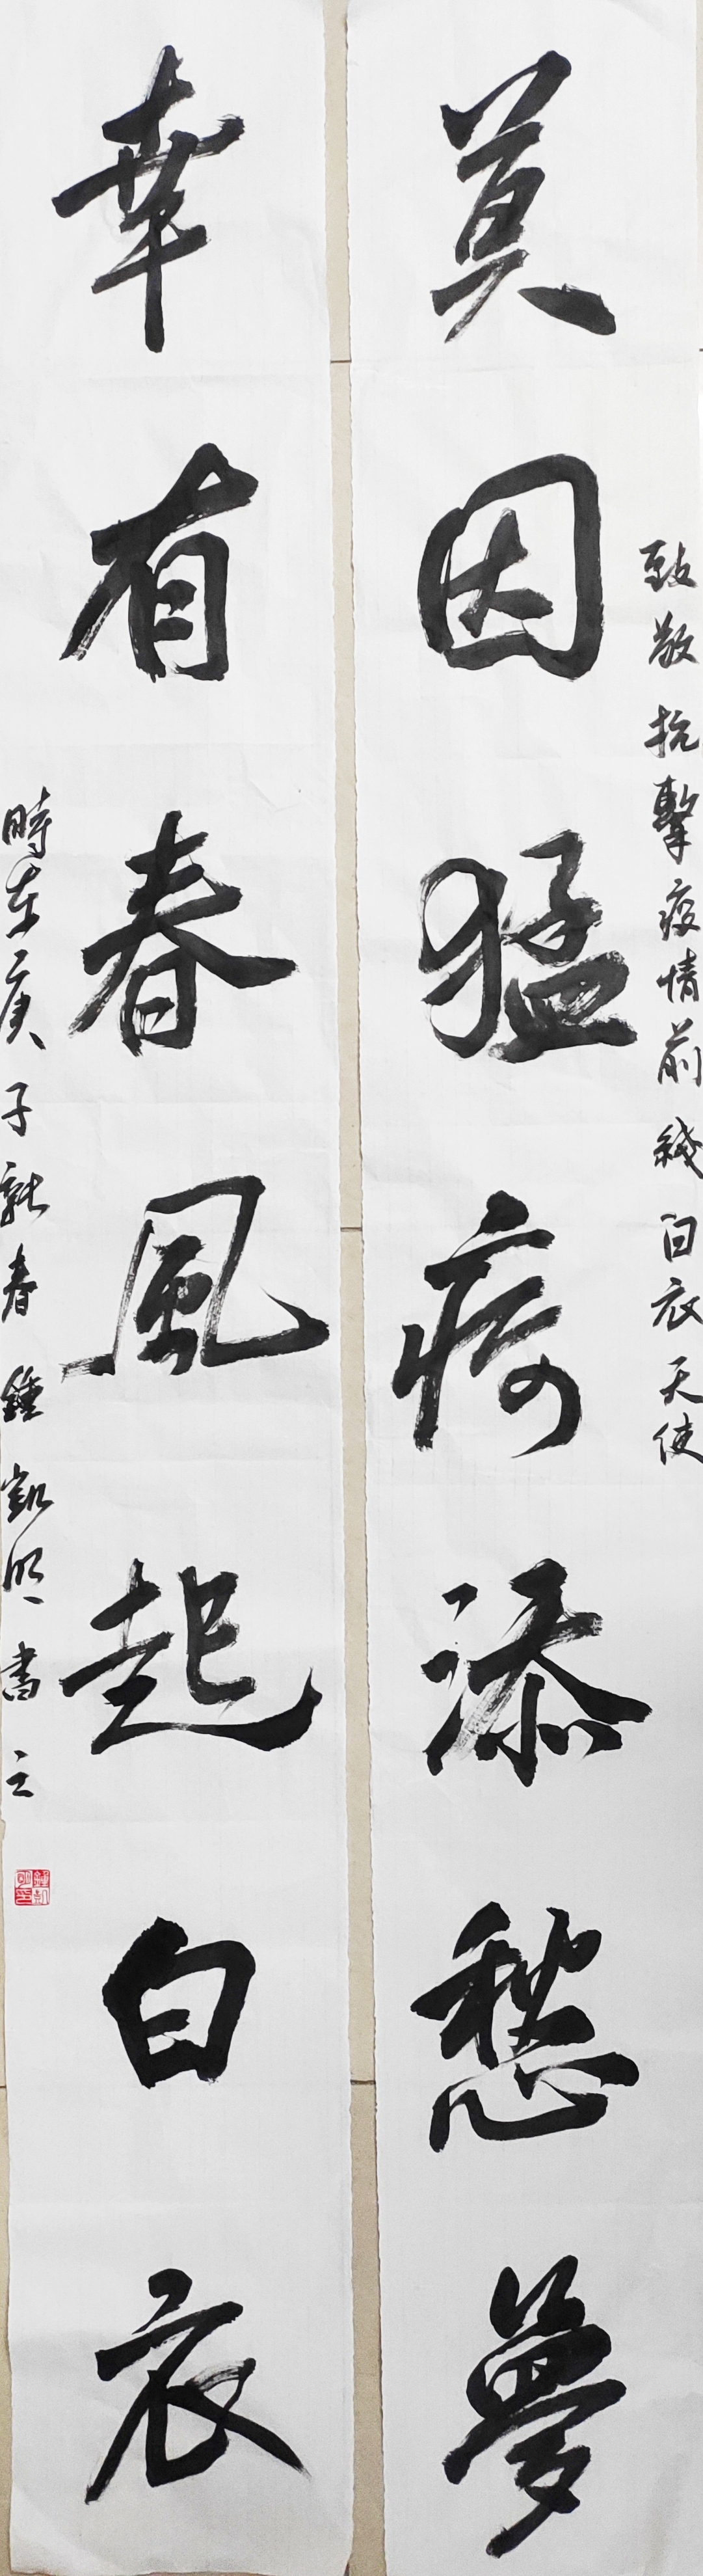 致敬抗擊疫情前綫白衣天使
莫因猛疴添愁夢
幸有春風起白衣
時在庚子新春鍾凱明書之